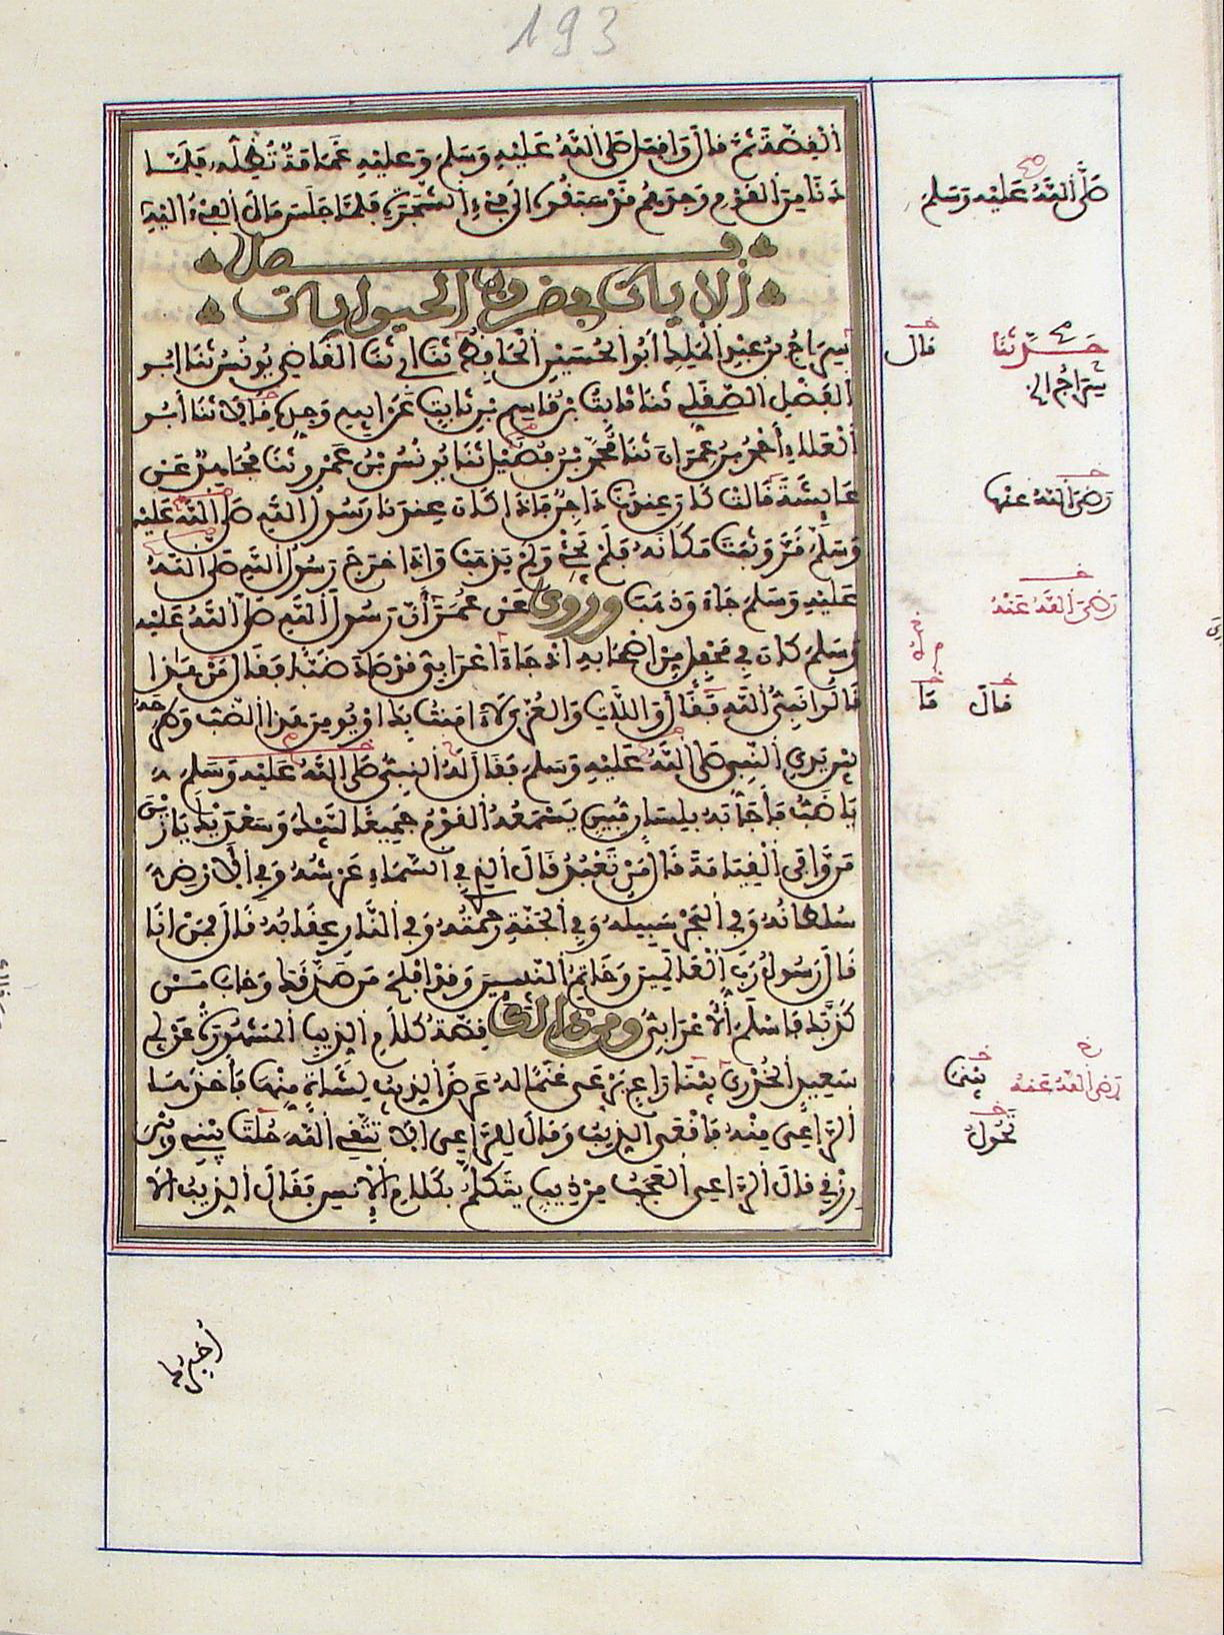 193
الْقِصَّةَ ثُمَّ قَالَ وَأَقْبَلَ صَلَّى اللَّهُ عَلَيْهِ وَسَلَّمَ وَعَلَيْهِ غَمَامَةٌ تُظِلُّهُ فَلَمَّا
دَنَا مِنَ الْقَوْمِ وَجَدَهُمْ قَدْ سَبَقُوهُ إِلَى فَيْءِ الشَّجَرَةِ فَلَمَّا جَلَسَ مَالَ الْفَيْءُ إِلَيْهِ
صَلَّى اللَّهُ عَلَيْهِ وَسَلَّمَ
فصل
الآيات في ضروب الحيوانات
سِرَاجُ بْنُ عَبْدِ الْمَلِكِ أَبُو الْحُسَيْنِ الْحَافِظُ ثَنَا أَبِي ثَنَا الْقَاضِي يُونُسُ ثَنَا أَبُو
حَدَّثَنَا
قَالَ
سِرَاجُ
الْفَضْلِ الصَّقَلِّي ثَنَا ثَابِتُ بْنُ قَاسِمِ بْنِ ثَابِتٍ عَنْ أَبِيهِ وَجَدِّهِ قَالَا ثَنَا أَبُو
الْعَلَاءِ أَحْمَدُ بْنُ عِمْرَانَ ثَنَا مُحَمَّدُ بْنُ فُضَيْلٍ ثَنَا يُونُسُ بْنُ عَمْرٍو ثَنَا مُجَاهِدٌ عَنْ
عَائِشَةَ قَالَتْ كَانَ عِنْدَنَا دَاجِنٌ فَإِذَا كَانَ عِنْدَنَا رَسُولُ اللَّهِ صَلَّى اللَّهُ عَلَيْهِ
رَضِيَ اللَّهُ عَنْهَا
وَسَلَّمَ قَرَّ وَثَبَتَ مَكَانَهُ فَلَمْ يَجِئْ وَلَمْ يَذْهَبْ وَإِذَا خَرَجَ رَسُولُ اللَّهِ صَلَّى اللَّهُ
عَلَيْهِ وَسَلَّمَ جَاءَ وَذَهَبَ وروي عَنْ عُمَرَ أَنَّ رَسُولَ اللَّهِ صَلَّى اللَّهُ عَلَيْهِ
رَضِيَ اللَّهُ عَنْهُ
وَسَلَّمَ كَانَ فِي مَحْفِلٍ مِنْ أَصْحَابِهِ إِذْ جَاءَ أَعْرَابِيٌّ قَدْ صَادَ ضَبًّا فَقَالَ مَنْ هَذَا
قَالُوا نَبِيُّ اللَّهِ فَقَالَ وَاللَّاتِ وَالْعُزَّى لَا ءَامَنْتُ بِكَ أَوْ يُومِنَ هَذَا الضَّبُّ وَطَرَحَهُ
قَالَ
مَا
بَيْنَ يَدَيِ النَّبِيِّ صَلَّى اللَّهُ عَلَيْهِ وَسَلَّمَ فَقَالَ لَهُ النَّبِيُّ صَلَّى اللَّهُ عَلَيْهِ وَسَلَّمَ
يَا ضَبُّ فَأَجَابَهُ بِلِسَانٍ مُبِينٍ يَسْمَعُهُ الْقَوْمُ جَمِيعًا لَبَّيْكَ وَسَعْدَيْكَ يَا زَيْنَ
مَنْ وَافَى الْقِيَامَةَ قَالَ مَنْ تَعْبُدُ قَالَ الَّذِي فِي السَّمَاءِ عَرْشُهُ وَفِي الْأَرْضِ
سُلْطَانُهُ وَفِي الْبَحْرِ سَبِيلُهُ وَفِي الْجَنَّةِ رَحْمَتُهُ وَفِي النَّارِ عِقَابُهُ قَالَ فَمَنْ أَنَا
قَالَ رَسُولُ رَبِّ الْعَالَمِينَ وَخَاتِمُ النَّبِيِّينَ وَقَدْ أَفْلَحَ مَنْ صَدَّقَكَ وَخَابَ مَنْ
كَذَّبَكَ فَأَسْلَمَ الْأَعْرَابِيُّ ومن ذلك قِصَّةُ كَلَامِ الذِّيبِ الْمَشْهُورَةُ عَنْ أَبِي
سَعِيدٍ الْخُدْرِيِّ بَيْنَا رَاعٍ يَرْعَى غَنَمًا لَهُ عَرَضَ الذِّيبُ لِشَاةٍ مِنْهَا فَأَخَذَهَا
رَضِيَ اللَّهُ عَنْهُ
بَيْنَمَا
الرَّاعِي مِنْهُ فَأَقْعَى الذِّيبُ وَقَالَ لِلرَّاعِي أَلَا تَتَّقِي اللَّهَ حُلْتَ بَيْنِي وَبَيْنَ
تَحُولُ
رِزْقِي قَالَ الرَّاعِي الْعَجَبُ مِنْ ذِيبٍ يَتَكَلَّمُ بِكَلَامِ الْإِنْسِ فَقَالَ الذِّيبُ أَلَا
أُخْبِرُكَ